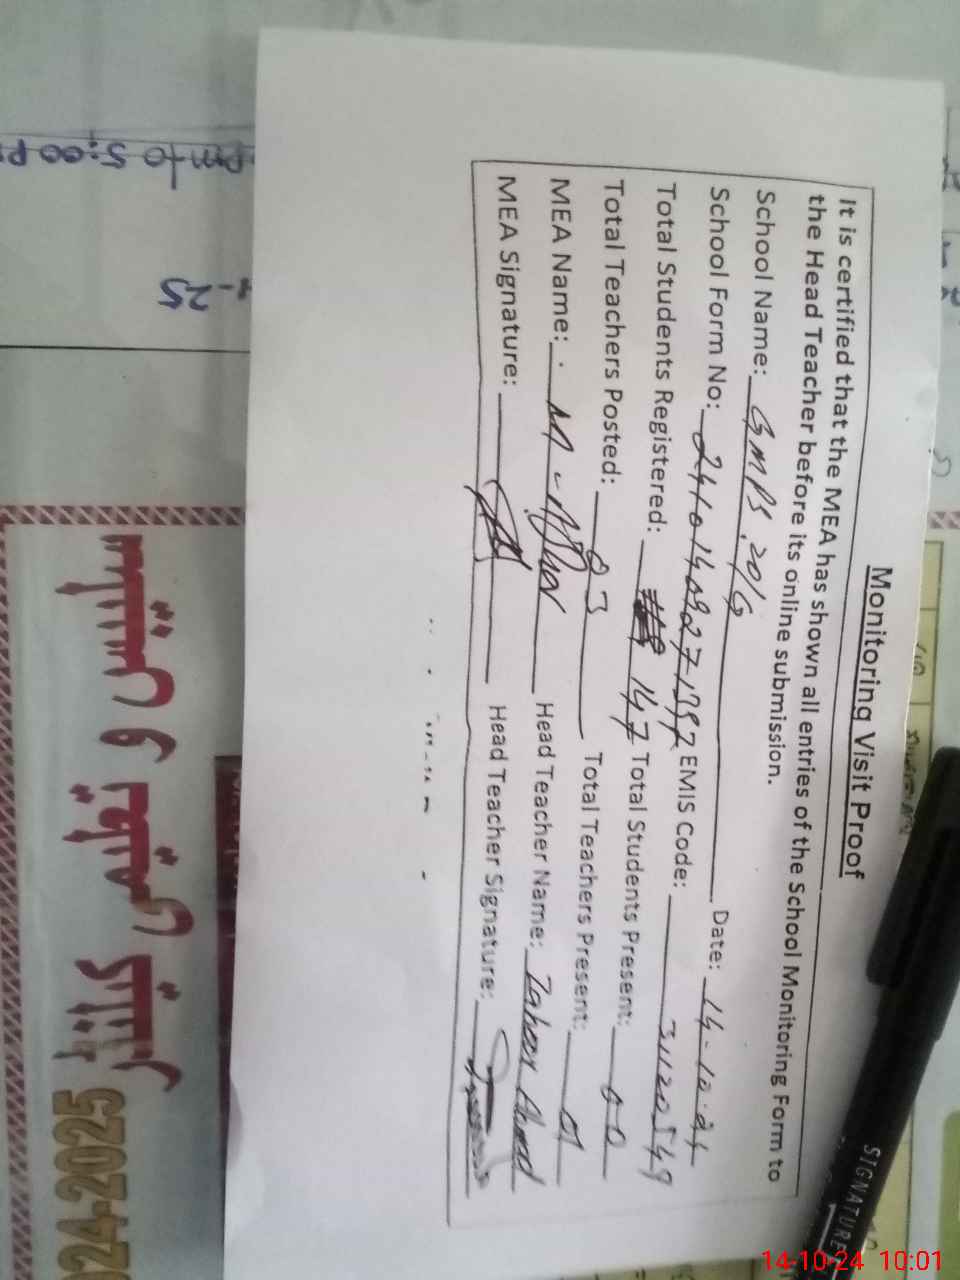 Monitoring Visit Proof
It is certified that the MEA has shown all entries of the School Monitoring Form to
the Head Teacher before its online submission.
School Name: GMPS 20/G Date: 14-10-24
School Form No: EMIS Code: 31120549
Total Students Registered: 147 Total Students Present: 00
Total Teachers Posted: 03 Total Teachers Present: 01
MEA Name: M. Head Teacher Name: Zaheer Ahmad
MEA Signature: Head Teacher Signature:
pm to 5:00 P
4-25
سلیبس و تعلیمی کیلنڈر
024-2025
SIGNATURE
14-10-24 10:01